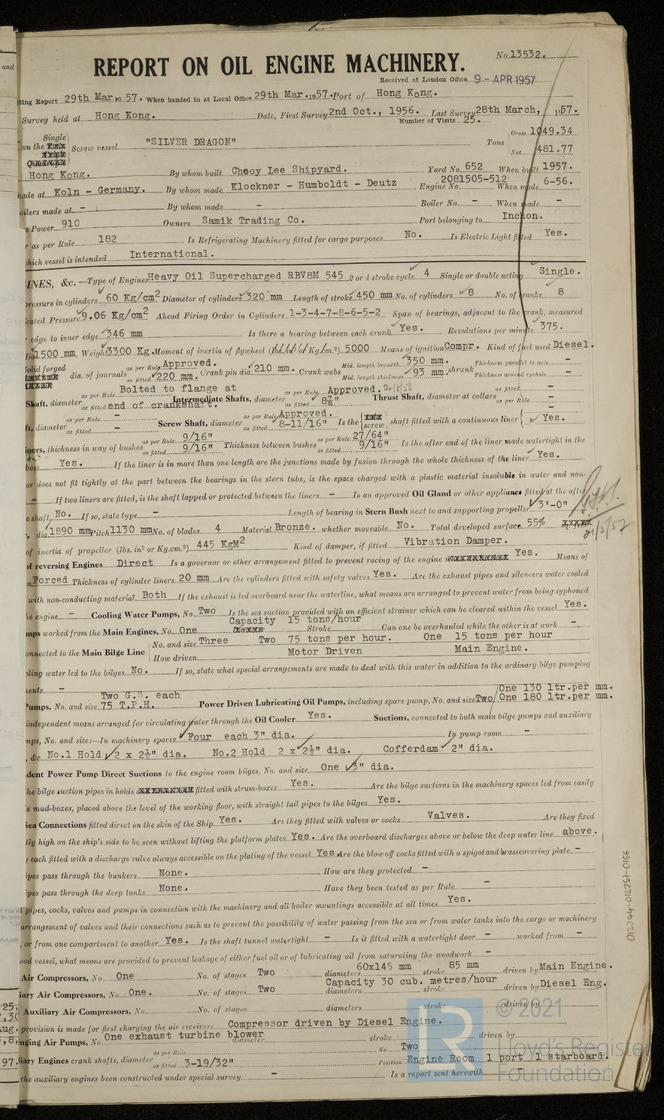 No. 13532.
REPORT ON OIL ENGINE MACHINERY.
Received at London Office 9 - APR 1957
ting Report 29th Mar 19 57. When handed in at Local Office 29th Mar. 1957. Port of Hong Kong.
Survey held at Hong Kong. Date, First Survey 2nd Oct., 1956. Last Survey 28th March, 1957.
Number of Visits 25.
Single on the Screw vessel "SILVER DRAGON" Tons Gross 1049.34 Net 481.77
Hong Kong. By whom built Cheoy Lee Shipyard. Yard No. 652 When built 1957.
ade at Koln - Germany. By whom made Klockner - Humboldt - Deutz Engine No. 2081505-512 When made 6-56.
oilers made at - By whom made - Boiler No. - When made -
e Power 910 Owners Samik Trading Co. Port belonging to Inchon.
r as per Rule 182 Is Refrigerating Machinery fitted for cargo purposes No. Is Electric Light fitted Yes.
hich vessel is intended International.
INES, &c.—Type of Engines Heavy Oil Supercharged RBV8M 545 2 or 4 stroke cycle 4 Single or double acting Single.
pressure in cylinders 60 Kg/cm² Diameter of cylinders 320 mm Length of stroke 450 mm No. of cylinders 8 No. of cranks 8
cated Pressure 9.06 Kg/cm² Ahead Firing Order in Cylinders 1-3-4-7-8-6-5-2 Span of bearings, adjacent to the crank, measured
edge to inner edge 346 mm Is there a bearing between each crank Yes. Revolutions per minute 375.
1500 mm. Weight 3300 Kg. Moment of inertia of flywheel (Kg.cm.²) 5000 Means of ignition Compr. Kind of fuel used Diesel.
Solid forged dia. of journals as per Rule Approved. as fitted 220 mm. Crank pin dia. 210 mm. Crank webs Mid. length breadth 350 mm. Mid. length thickness 93 mm. shrunk Thickness parallel to axis - Thickness around eyehole -
Shaft, diameter as per Rule Bolted to flange at as fitted end of crankshaft. Intermediate Shafts, diameter as per Rule Approved. as fitted 8¾" Thrust Shaft, diameter at collars as fitted - as per Rule -
ft, diameter as per Rule - as fitted - Screw Shaft, diameter as per Rule Approved. as fitted 8-11/16" Is the screw shaft fitted with a continuous liner Yes.
iners, thickness in way of bushes as per Rule 9/16" as fitted 9/16" Thickness between bushes as per Rule 27/64" as fitted 9/16" Is the after end of the liner made watertight in the
boss Yes. If the liner is in more than one length are the junctions made by fusion through the whole thickness of the liner Yes.
er does not fit tightly at the part between the bearings in the stern tube, is the space charged with a plastic material insoluble in water and non-
- If two liners are fitted, is the shaft lapped or protected between the liners - Is an approved Oil Gland or other appliance fitted at the after
e shaft No. If so, state type - Length of bearing in Stern Bush next to and supporting propeller 3'-0"
dia. 1890 mm Pitch 1130 mm No. of blades 4 Material Bronze. whether moveable No. Total developed surface 55%
of inertia of propeller (lbs. in² or Kg.cm.²) 445 KgM² Kind of damper, if fitted Vibration Damper.
of reversing Engines Direct Is a governor or other arrangement fitted to prevent racing of the engine Yes. Means of
Forced Thickness of cylinder liners 20 mm Are the cylinders fitted with safety valves Yes. Are the exhaust pipes and silencers water cooled
with non-conducting material Both If the exhaust is led overboard near the waterline, what means are arranged to prevent water from being syphoned
he engine - Cooling Water Pumps, No. Two Is the sea suction provided with an efficient strainer which can be cleared within the vessel Yes.
mps worked from the Main Engines, No. One Capacity 15 tons/hour Stroke Can one be overhauled while the other is at work -
onnected to the Main Bilge Line No. and size Three Two 75 tons per hour. One 15 tons per hour
How driven Motor Driven Main Engine.
oling water led to the bilges No. If so, state what special arrangements are made to deal with this water in addition to the ordinary bilge pumping
ments -
Pumps, No. and size Two G.S. each 75 T.P.H. Power Driven Lubricating Oil Pumps, including spare pump, No. and size Two One 130 ltr.per mm. One 180 ltr.per mm.
independent means arranged for circulating water through the Oil Cooler Yes. Suctions, connected to both main bilge pumps and auxiliary
mps, No. and size:—In machinery spaces Four each 3" dia. In pump room -
, &c. No.1 Hold 2 x 2½" dia. No.2 Hold 2 x 2½" dia. Cofferdam 2" dia.
dent Power Pump Direct Suctions to the engine room bilges, No. and size One 3" dia.
he bilge suction pipes in holds fitted with strum-boxes Yes. Are the bilge suctions in the machinery spaces led from easily
e mud-boxes, placed above the level of the working floor, with straight tail pipes to the bilges Yes.
Sea Connections fitted direct on the skin of the Ship Yes. Are they fitted with valves or cocks Valves. Are they fixed
tly high on the ship's side to be seen without lifting the platform plates Yes. Are the overboard discharges above or below the deep water line above.
each fitted with a discharge valve always accessible on the plating of the vessel Yes. Are the blow off cocks fitted with a spigot and brass covering plate -
ipes pass through the bunkers None. How are they protected -
ipes pass through the deep tanks None. Have they been tested as per Rule -
l pipes, cocks, valves and pumps in connection with the machinery and all boiler mountings accessible at all times Yes.
arrangement of valves and their connections such as to prevent the possibility of water passing from the sea or from water tanks into the cargo or machinery
or from one compartment to another Yes. Is the shaft tunnel watertight - Is it fitted with a watertight door - worked from -
ood vessel, what means are provided to prevent leakage of either fuel oil or of lubricating oil from saturating the woodwork -
Air Compressors, No. One No. of stages Two diameters 60x145 mm stroke 85 mm driven by Main Engine.
iary Air Compressors, No. One. No. of stages Two diameters Capacity 30 cub. metres/hour stroke driven by Diesel Eng.
Auxiliary Air Compressors, No. - No. of stages - diameters - stroke driven by -
provision is made for first charging the air receivers Compressor driven by Diesel Engine.
nging Air Pumps, No. One exhaust turbine blower diameter stroke driven by
iary Engines crank shafts, diameter as per Rule as fitted 3-19/32" No. Two Position Engine Room 1 port 1 starboard.
the auxiliary engines been constructed under special survey - Is a report sent herewith
012744-012751-0166
© 2021
Lloyd's Register
Foundation